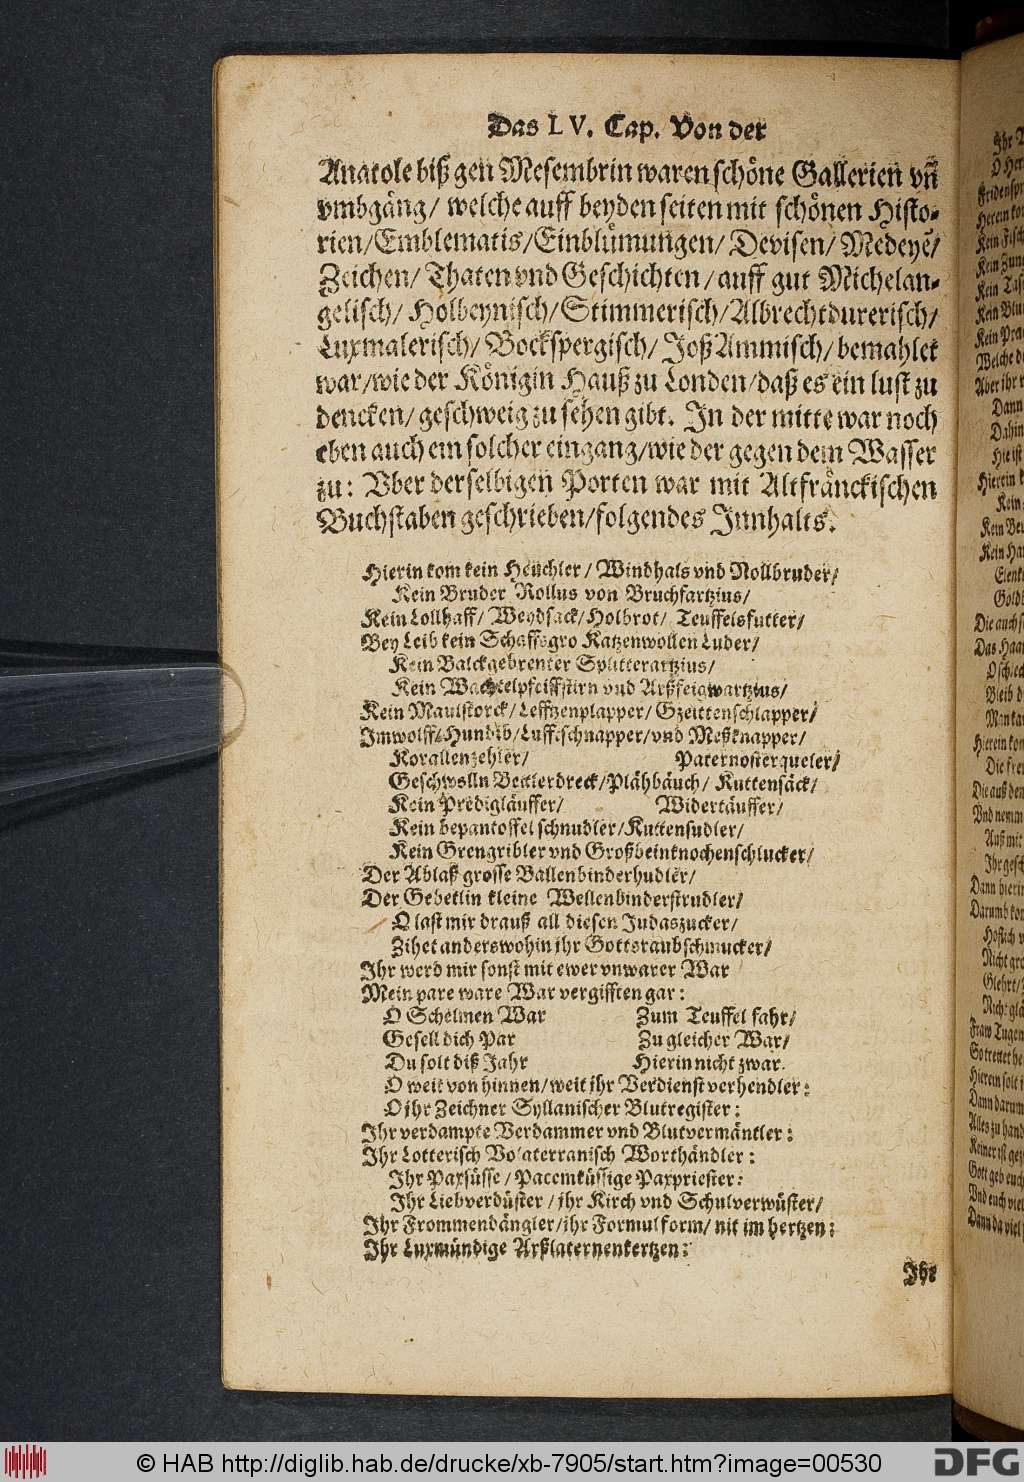 Das LV. Cap. Von der
Anatole biß gen Mesembrin waren schöne Gallerien vñ
vmbgäng/ welche auff beyden seiten mit schönen Histo-
rien/Emblematis/Einblümungen/ Devisen/ Medeyẽ/
Zeichen/ Thaten vnd Geschichten/auff gut Michelan-
gelisch/ Holbeynisch/Stimmerisch/Albrechtdurerisch/
Luxmalerisch/ Bockspergisch/ Joß Ammisch/bemahlet
war/wie der Königin Hauß zu Londen/daß es ein lust zu
dencken/geschweig zu sehen gibt. In der mitte war noch
eben auch ein solcher eingang/wie der gegen dem Wasser
zu: Vber derselbigen Porten war mit Altfränckischen
Buchstaben geschrieben/folgendes Innhalts.
Hierin kom kein Heuchler/ Windhals vnd Nollbruder/
Kein Bruder Rollus von Bruchfartzius/
Kein Lollhaff/ Weydsäck/Holbrot/ Teuffelsfutter/
Bey Leib kein Schaffsgro Katzenwollen Luder/
Kein Balckgebrenter Splitterartzius/
Kein Wachtelpfeiffstirn vnd Arßfeigwartzius/
Kein Maulstorck/Leffzenplapper/Gzeittenschlapper/
Imwolff-Hundib/Lufftschnapper/vnd Meßknapper/
Korallenzehler/ Paternosterqueler/
Geschwolln Bettlerdreck/Plähbäuch/ Kuttensäck/
Kein Predigläuffer/ Widertäuffer/
Kein bepantoffel schnudler/Kuttensudler/
Kein Grengribler vnd Großbeinknochenschlucker/
Der Ablaß grosse Ballenbinderhudler/
Der Gebetlin kleine Wellenbinderstrudler/
O last mir drauß all diesen Judaszucker/
Zihet anderswohin ihr Gottsraubschmucker/
Ihr werd mir sonst mit ewer vnwarer War
Mein pare ware War vergifften gar:
O Schelmen War Zum Teuffel fahr/
Gesell dich Par Zu gleicher War/
Du solt diß Jahr Hierin nicht zwar.
O weit von hinnen/weit ihr Verdienstverhendler:
O jhr Zeichner Syllanischer Blutregister:
Ihr verdampte Verdammer vnd Blutvermäntler:
Ihr Lotterisch Volaterranisch Worthändler:
Ihr Paxfüsse/Pacemküssige Paxpriester:
Ihr Liebverdüster/jhr Kirch vnd Schulverwüster/
Ihr Frommendängler/ihr Formulform/ nit im hertzen:
Ihr Luxmündige Arßlaternenkertzen:
Ihr
© HAB http://diglib.hab.de/drucke/xb-7905/start.htm?image=00530
DFG